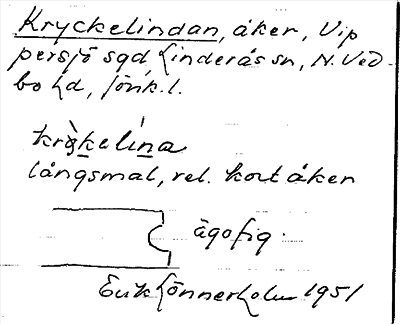 Kryckelindan, åker, Vip
persjö sgd, Linderås sn, N. Ved
bo hd, Jönk. l.
krỳkelína
långsmal, rel. kort åker
ägofig.
Erik Lönnerholm 1951